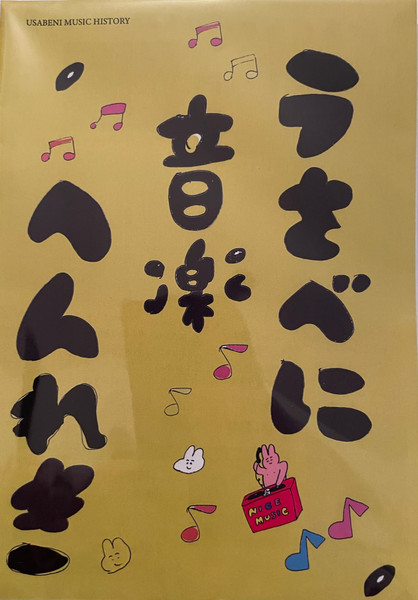 USABENI MUSIC HISTORY
うさべに
音楽
へんれき
NICE
MUSIC